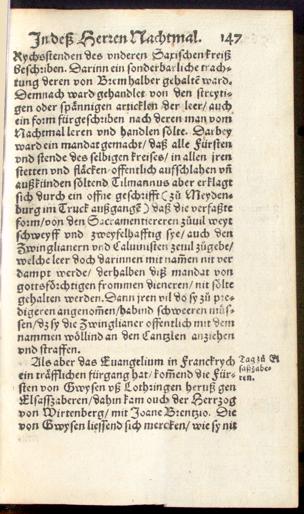 In deß Herren Nachtmal. 147
Rychßstenden des vnderen Saxischen kreiß
beschriben. Darinn ein sonderbarliche trach-
tung deren von Brem halber gehalte ward.
Demnach ward gehandlet von den streyti-
gen oder spännigen articklen der leer/ auch
ein form fürgeschriben nach deren man vom
Nachtmal leren vnd handlen sölte. Darbey
ward ein mandat gemacht/ daß alle Fürsten
vnd stende des selbigen kreises/ in allen jren
stetten vnd fläcken offentlich aufschlahen vn̄
außkünden söltend Tilmannus aber erklagt
sich durch ein offne geschrifft (zů Meyden-
burg im Truck außgangē) daß die verfaßte
form/ von den Sacramentiereren zůuil weyt
schweyff vnd zweyfelhafftig sye/ auch den
Zwinglianern vnd Caluinisten zeuil zůgebe/
welche leer doch darinnen mit namēn nit ver
dampt werde/ derhalben diß mandat von
gottsförchtigen frommen dieneren/ nit sölte
gehalten werden. Dann jren vil do sy zů pre-
digeren angenomen/ habind schweeren müs-
sen/ dz sy die Zwinglianer offentlich mit dem
nammen wöllind an den Cantzlen anziehen
vnd straffen.
Als aber das Euangelium in Franckrych
ein träfflichen fürgang hat/ kom̄end die Für-
sten von Gwysen vß Lothringen heruß gen
Elsasszaberen/ dahin kam ouch der Hertzog
von Wirtenberg/ mit Joane Brentzio. Die
von Gwysen liessend sich mercken/ wie sy nit
Tag zů El
saßzabe-
ren.